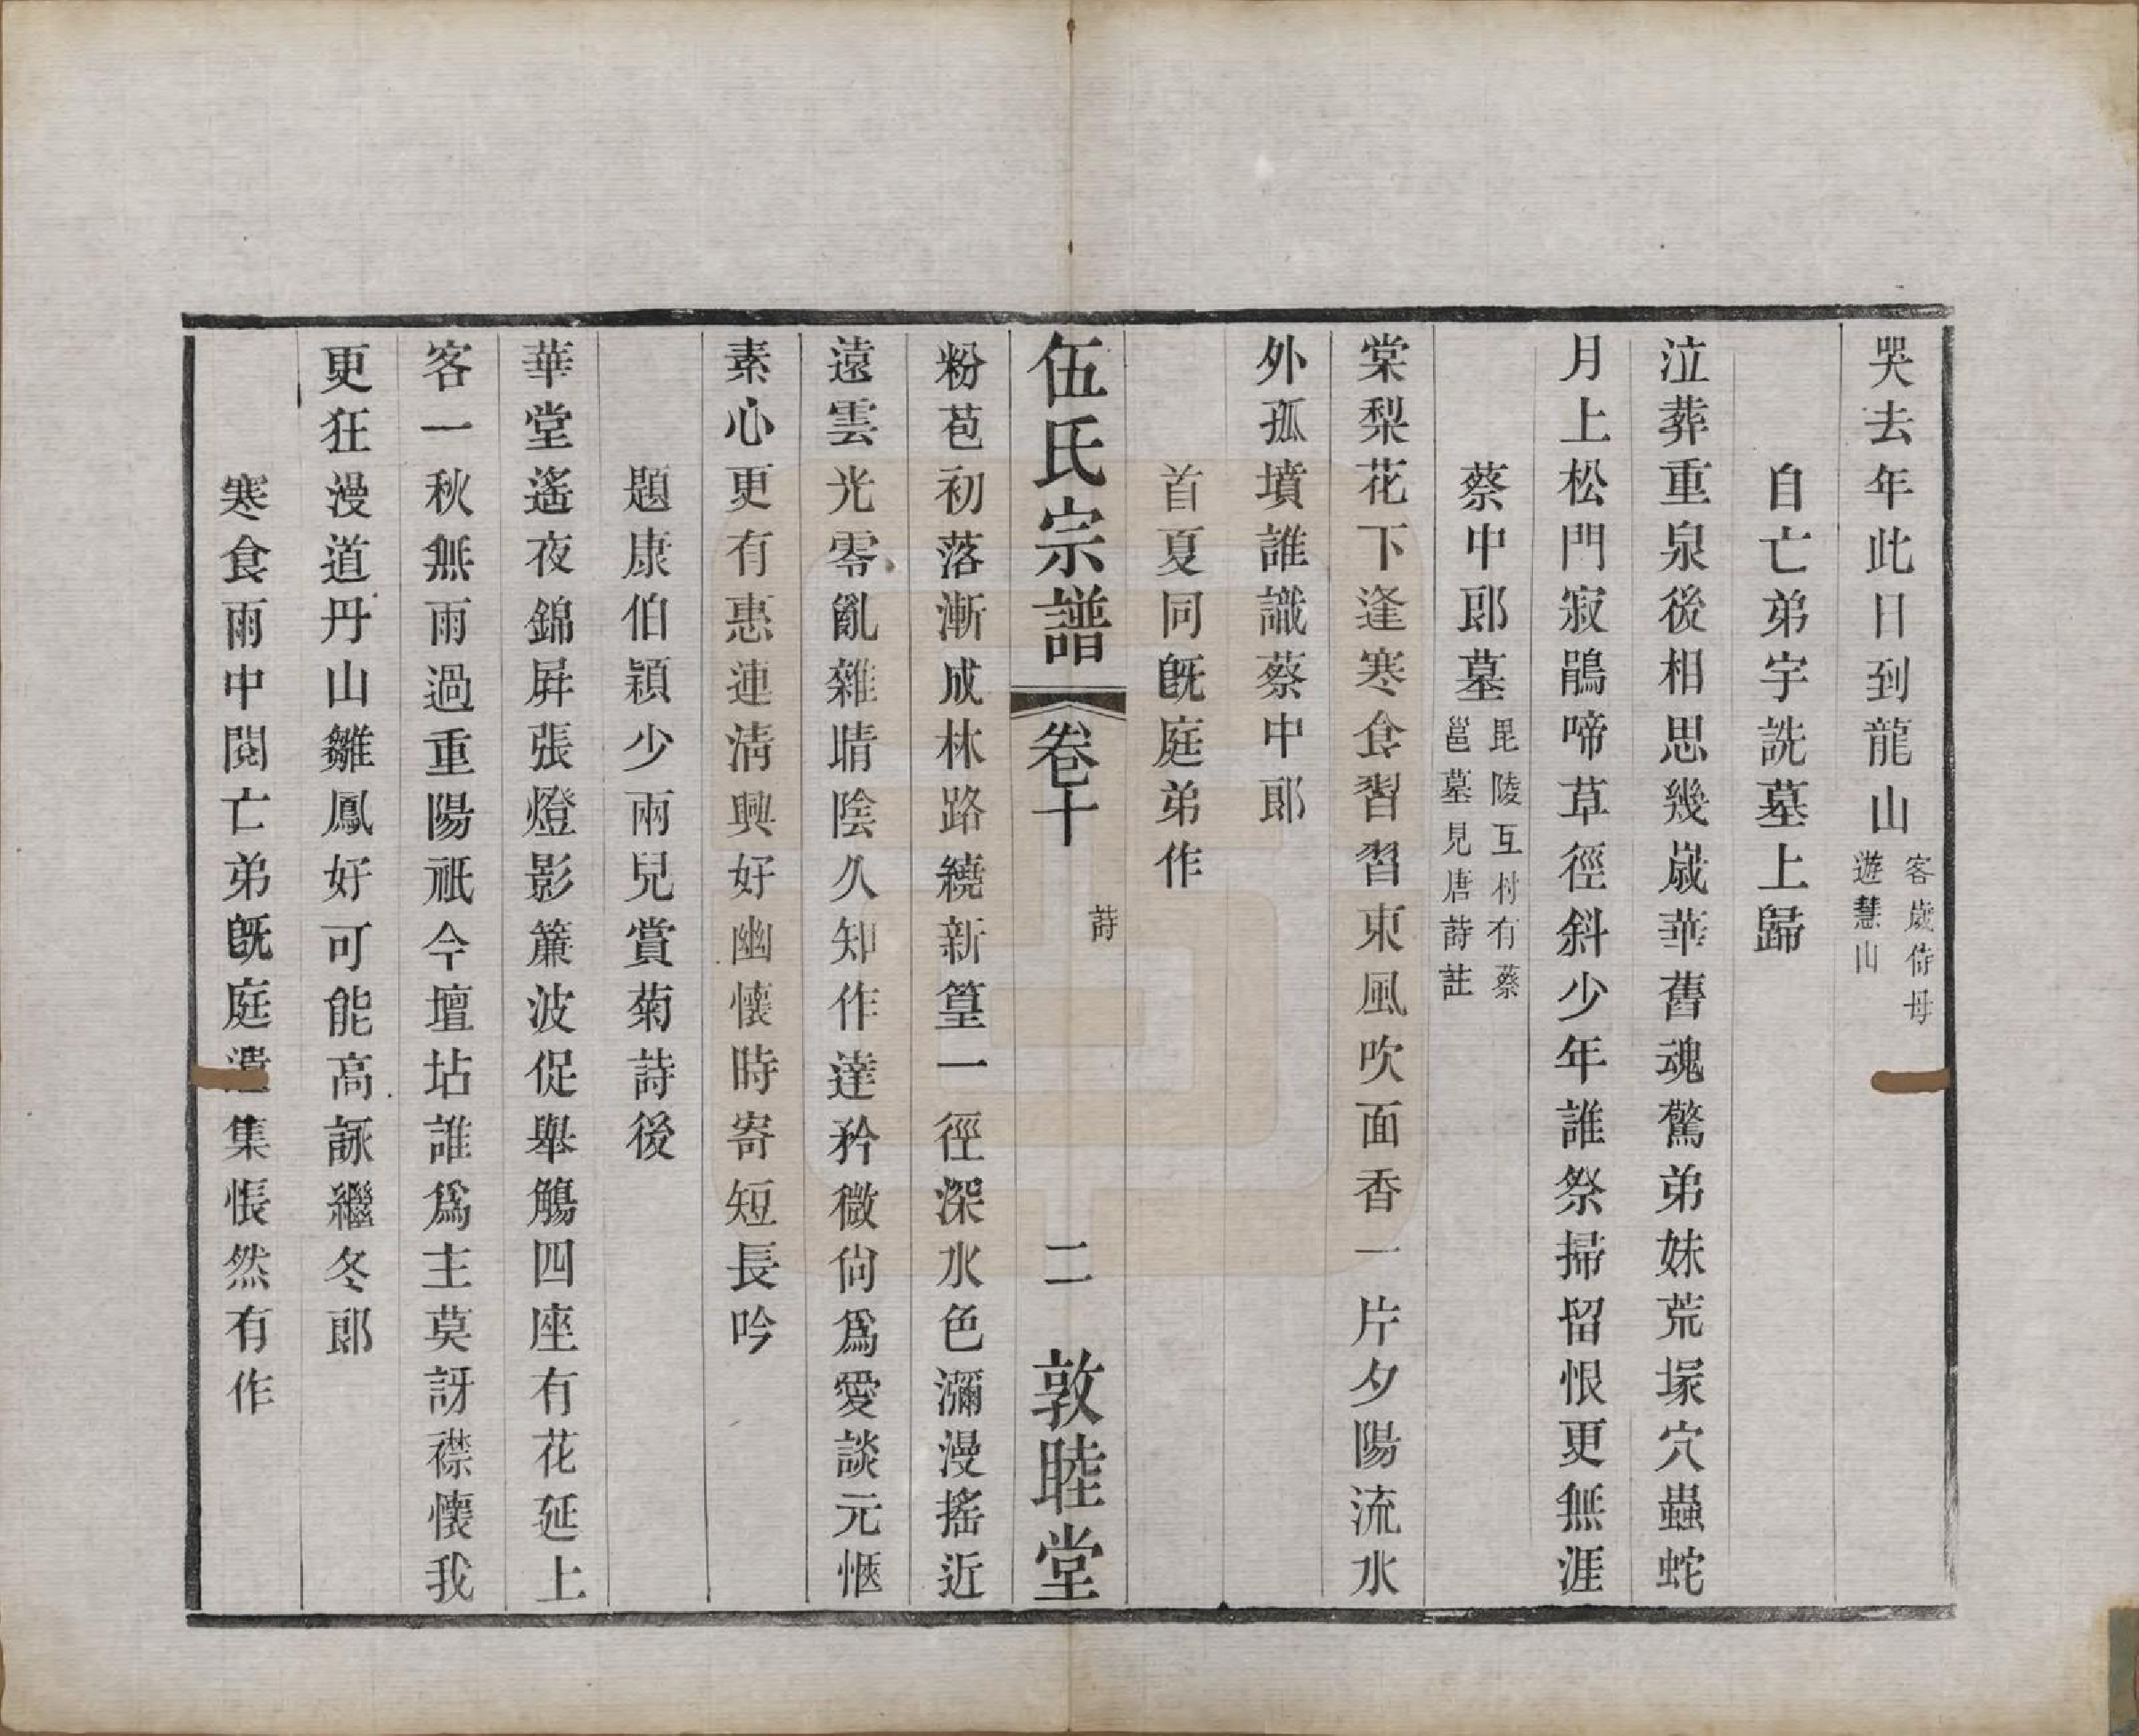 哭去年此日到龍山客歲侍母遊慧山
自亡弟宇詵墓上歸
泣葬重泉後相思幾歲華舊魂驚弟妹荒塚穴蟲蛇
月上松門寂鵑啼草徑斜少年誰祭掃留恨更無涯
蔡中郎墓毘陵互村有蔡邕墓見唐詩註
棠梨花下逢寒食習習東風吹面香一片夕陽流水
外孤墳誰識蔡中郎
首夏同旣庭弟作
伍氏宗譜 卷十 詩 二 敦睦堂
粉苞初落漸成林路繞新篁一徑深水色瀰漫搖近
遠雲光零亂雜晴陰久知作達矜微尙爲愛談元愜
素心更有惠連淸興好幽懷時寄短長吟
題康伯穎少兩兒賞菊詩後
華堂遙夜錦屛張燈影簾波促舉觴四座有花延上
客一秋無雨過重陽祇今壇坫誰爲主莫訝襟懷我
更狂漫道丹山雛鳳好可能高詠繼冬郎
寒食雨中閱亡弟旣庭遺集悵然有作